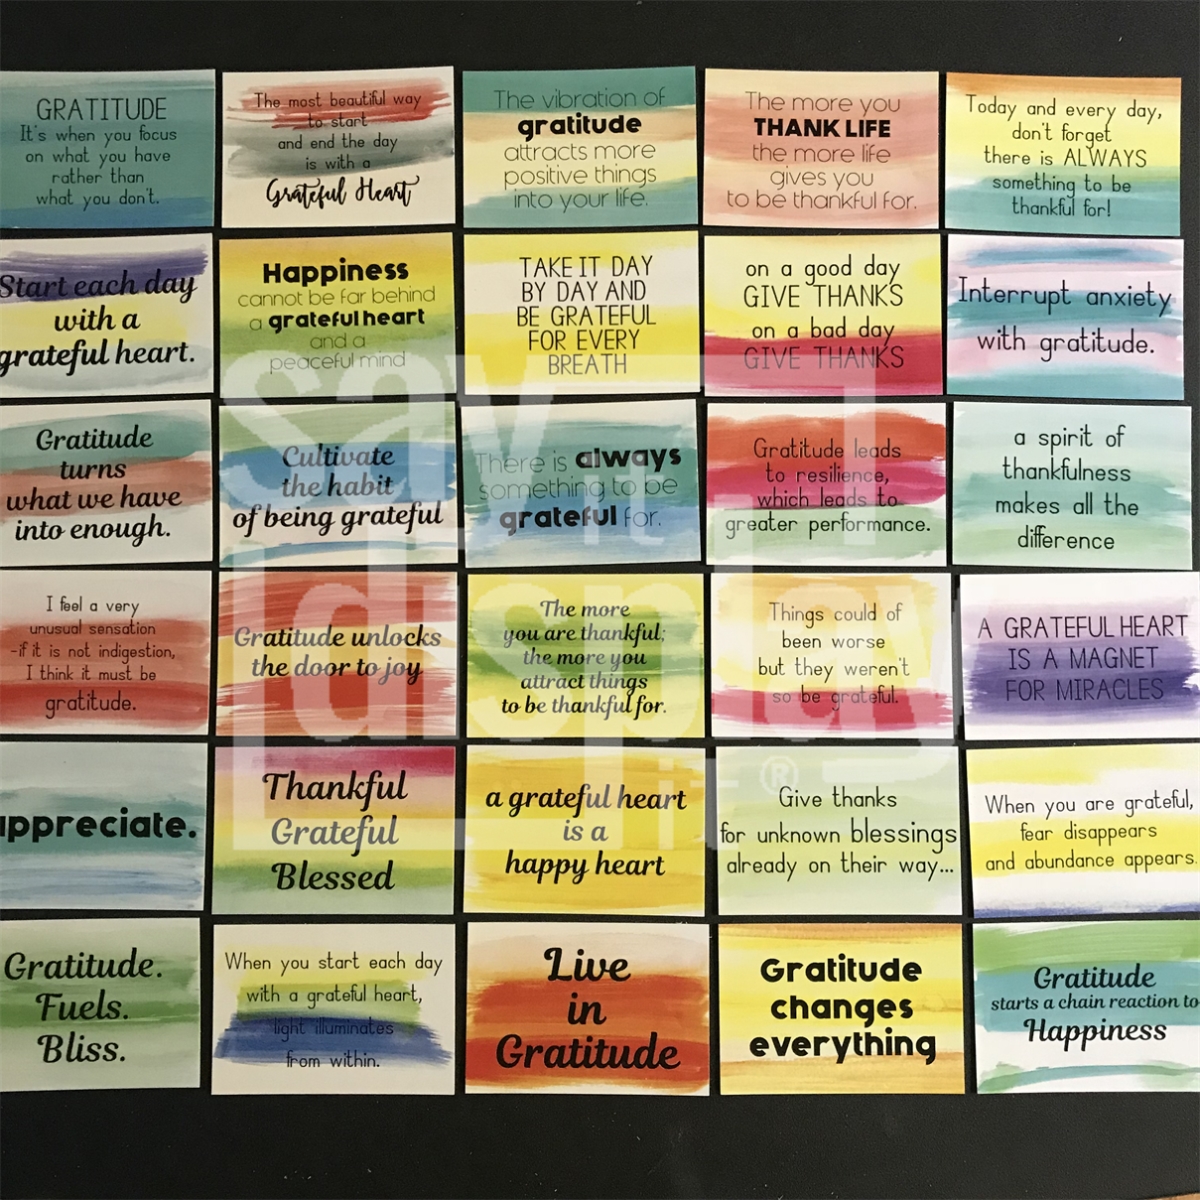 GRATITUDE
It's when you focus
on what you have
rather than
what you don't.
The most beautiful way
to start
and end the day
is with a
Grateful Heart
The vibration of
gratitude
attracts more
positive things
into your life.
The more you
THANK LIFE
the more life
gives you
to be thankful for.
Today and every day,
don't forget
there is ALWAYS
something to be
thankful for!
Start each day
with a
grateful heart.
Happiness
cannot be far behind
a grateful heart
and a
peaceful mind
TAKE IT DAY
BY DAY AND
BE GRATEFUL
FOR EVERY
BREATH
on a good day
GIVE THANKS
on a bad day
GIVE THANKS
Interrupt anxiety
with gratitude.
Gratitude
turns
what we have
into enough.
Cultivate
the habit
of being grateful
There is always
something to be
grateful for.
Gratitude leads
to resilience,
which leads to
greater performance.
a spirit of
thankfulness
makes all the
difference
I feel a very
unusual sensation
-if it is not indigestion,
I think it must be
gratitude.
Gratitude unlocks
the door to joy
The more
you are thankful;
the more you
attract things
to be thankful for.
Things could of
been worse
but they weren't
so be grateful.
A GRATEFUL HEART
IS A MAGNET
FOR MIRACLES
appreciate.
Thankful
Grateful
Blessed
a grateful heart
is a
happy heart
Give thanks
for unknown blessings
already on their way...
When you are grateful,
fear disappears
and abundance appears.
Gratitude.
Fuels.
Bliss.
When you start each day
with a grateful heart,
light illuminates
from within.
Live
in
Gratitude
Gratitude
changes
everything
Gratitude
starts a chain reaction to
Happiness
say it
display
it®